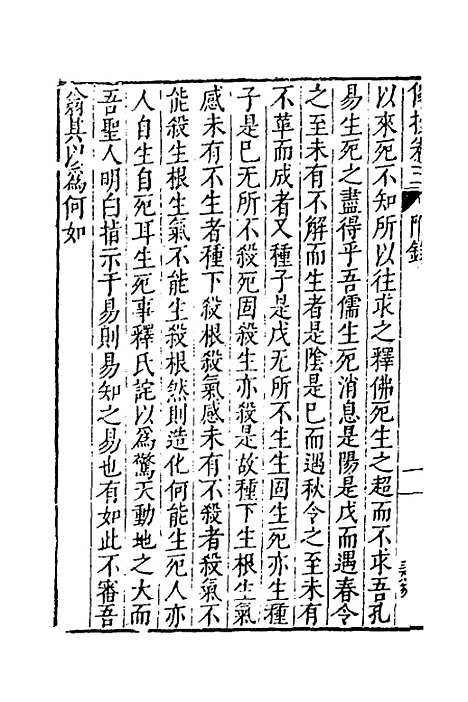 卷三 附錄
以來死不知所以往求之釋佛死生之超而不求吾孔
易生死之盡得乎吾儒生死消息是陽是戊而遇春令
之至未有不解而生者是陰是巳而遇秋令之至未有
不革而成者又種子是戊無所不生生固生死亦生種
子是巳無所不殺死固殺生亦殺是故種下生根生氣
感未有不生者種下殺根殺氣感未有不殺者殺氣不
能殺生根生氣不能生殺根然則造化何能生死人亦
人自生自死耳生死事釋氏詫以爲驚天動地之大而
吾聖人明白指示于易則易知之易也有如此不審吾
翁其以爲何如